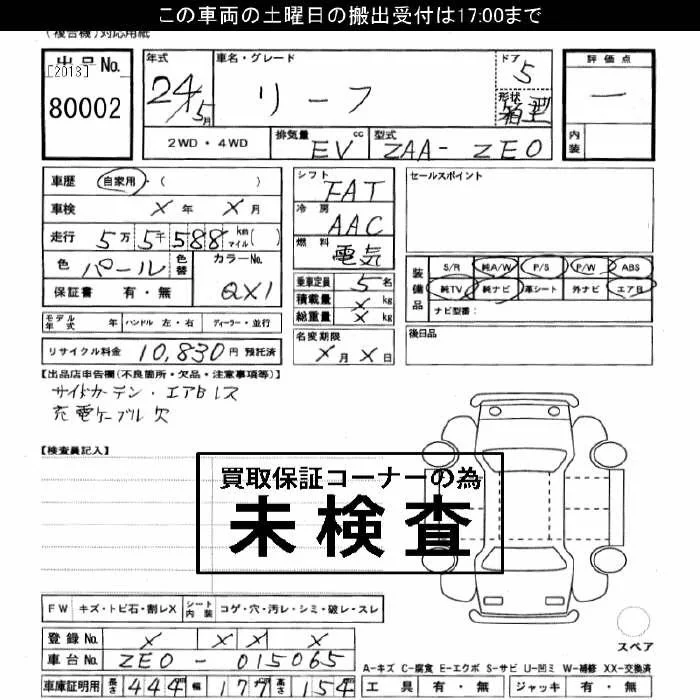 この車両の土曜日の搬出受付は17:00まで
(複合機)対応用紙
出品No.
[2013]
80002
年式
24/5月
車名・グレード
リーフ
ドア 5
形状 箱型
評価点
一
内装
2WD・4WD
排気量 cc
EV
型式
ZAA-ZE0
車歴 自家用・( )
車検 X年 X月
走行 5万5千588 km マイル( )
色 パール 色替 カラーNo. QX1
保証書 有・無
モデル年式 年 ハンドル 左・右 ディーラー・並行
リサイクル料金 10,830円 預託済
シフト FAT
冷房 AAC
燃料 電気
乗車定員 5名
積載量 X kg
総重量 X kg
名変期限
X月X日
セールスポイント
装備品
S/R 純A/W P/S P/W ABS
純TV 純ナビ 革シート 外ナビ エアB
ナビ型番:
後日品
【出品店申告欄(不良箇所・欠品・注意事項等)】
サイドカーテン・エアBレス
充電ケーブル欠
【検査員記入】
買取保証コーナーの為
未検査
FW キズ・トビ石・割レX シート内装 コゲ・穴・汚レ・シミ・破レ・スレ
登録No. X X X X
車台No. ZE0-015065
車庫証明用 長さ 444 幅 177 高さ 154
スペア
A-キズ C-腐食 E-エクボ S-サビ U-凹ミ W-補修 XX-交換済
工具 有・無 ジャッキ 有・無